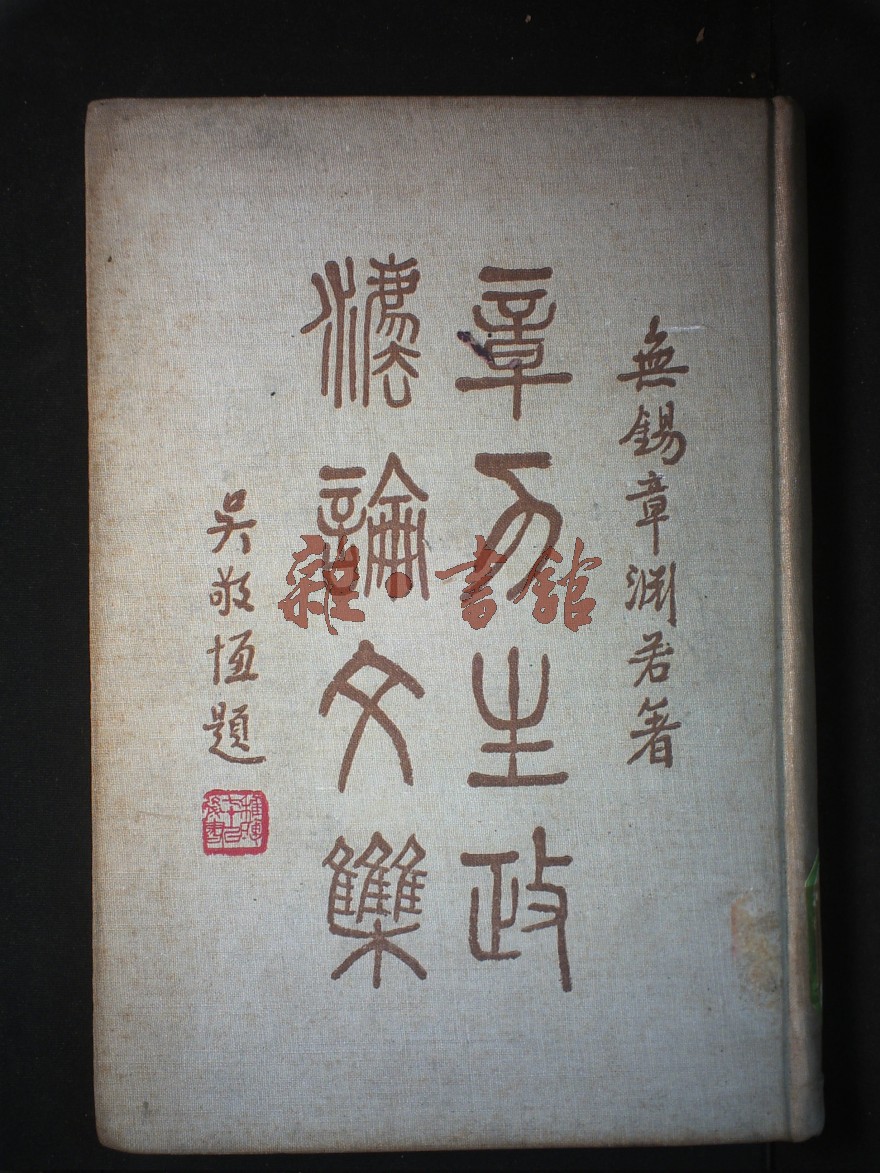 無錫章渊若著
章力生政
灋論文集
吳敬恒題
雜·書館